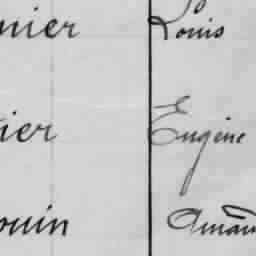 nier Louis
ier Eugène
ouin Aman